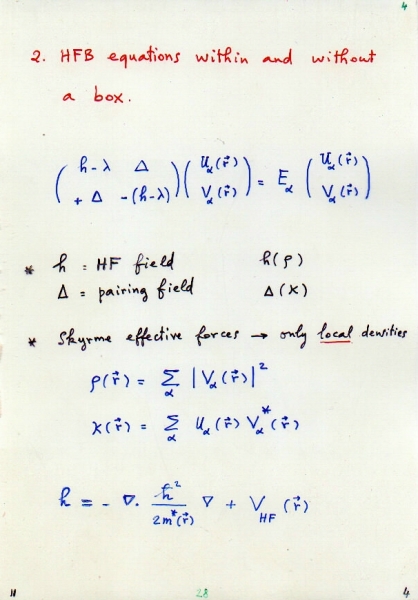 4
2. HFB equations within and without
a box.
( h-λ Δ ) ( U_α(r⃗) ) = E_α ( U_α(r⃗) )
( +Δ -(h-λ) ) ( V_α(r⃗) ) ( V_α(r⃗) )
* h = HF field h(ρ)
Δ = pairing field Δ(χ)
* Skyrme effective forces → only local densities
ρ(r⃗) = Σ_α |V_α(r⃗)|²
χ(r⃗) = Σ_α U_α(r⃗) V_α*(r⃗)
h = - ∇. ħ²/2m*(r⃗) ∇ + V_HF (r⃗)
28 4